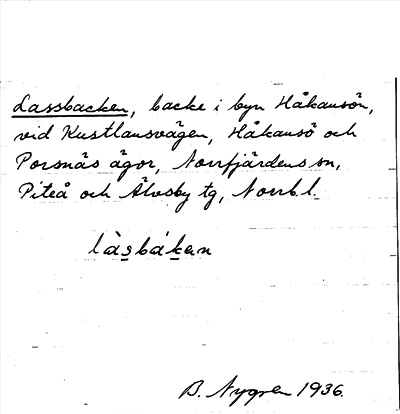 Lassbacken, backe i byn Håkansön,
vid Kustlansvägen, Håkansö och
Porsnäs ägor, Norrfjärdens sn,
Piteå och Älvsby tg, Norrb. l.
làsbákan
B. Nygren 1936.